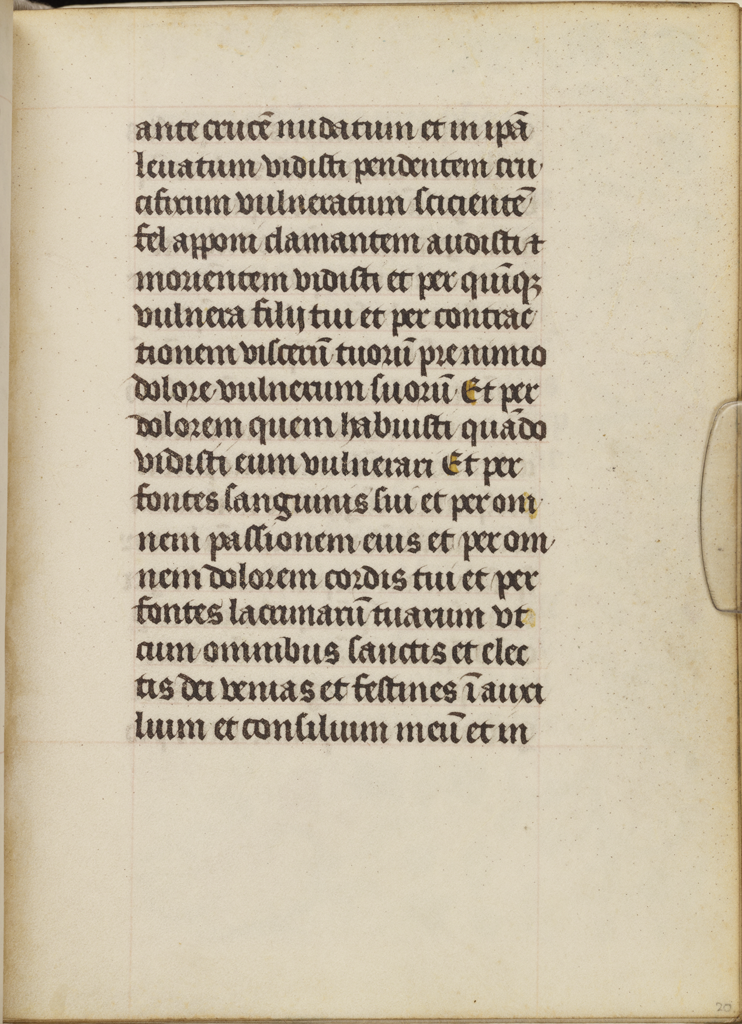 ante crucē nudatum et in ipā
leuatum vidisti pendentem cru
cifixum vulneratum scicientē
fel apponi clamantem audisti ⁊
morientem vidisti et per quīqꝫ
vulnera filij tui et per contrac
tionem viscerū tuorū pre nimio
dolore vulnerum suorū Et per
dolorem quem habuisti quādo
vidisti eum vulnerari Et per
fontes sanguinis sui et per om
nem passionem eius et per om
nem dolorem cordis tui et per
fontes lacrimarū tuarum vt
cum omnibus sanctis et elec
tis dei venias et festines ī auxi
lium et consilium meū et in
20